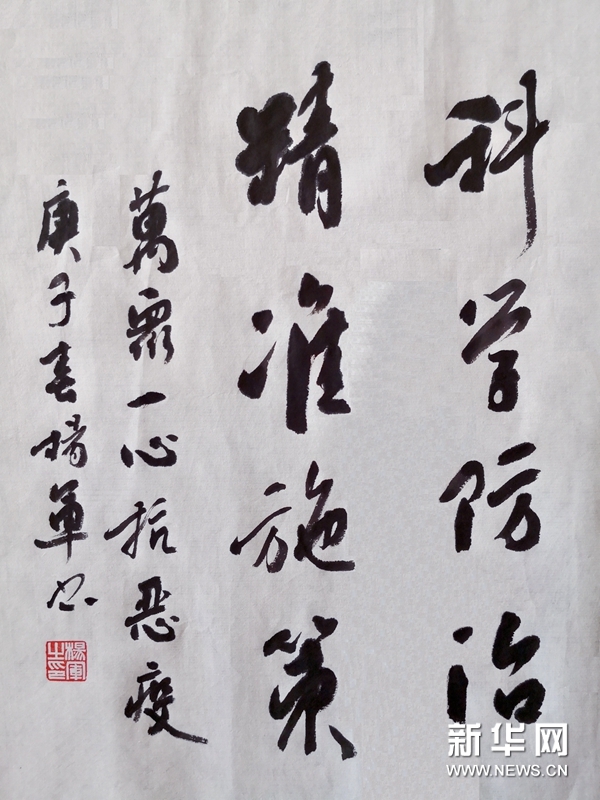 科学防治
精准施策
萬眾一心抗恶疫
庚子春楊軍书
楊軍之印
新华网
WWW.NEWS.CN